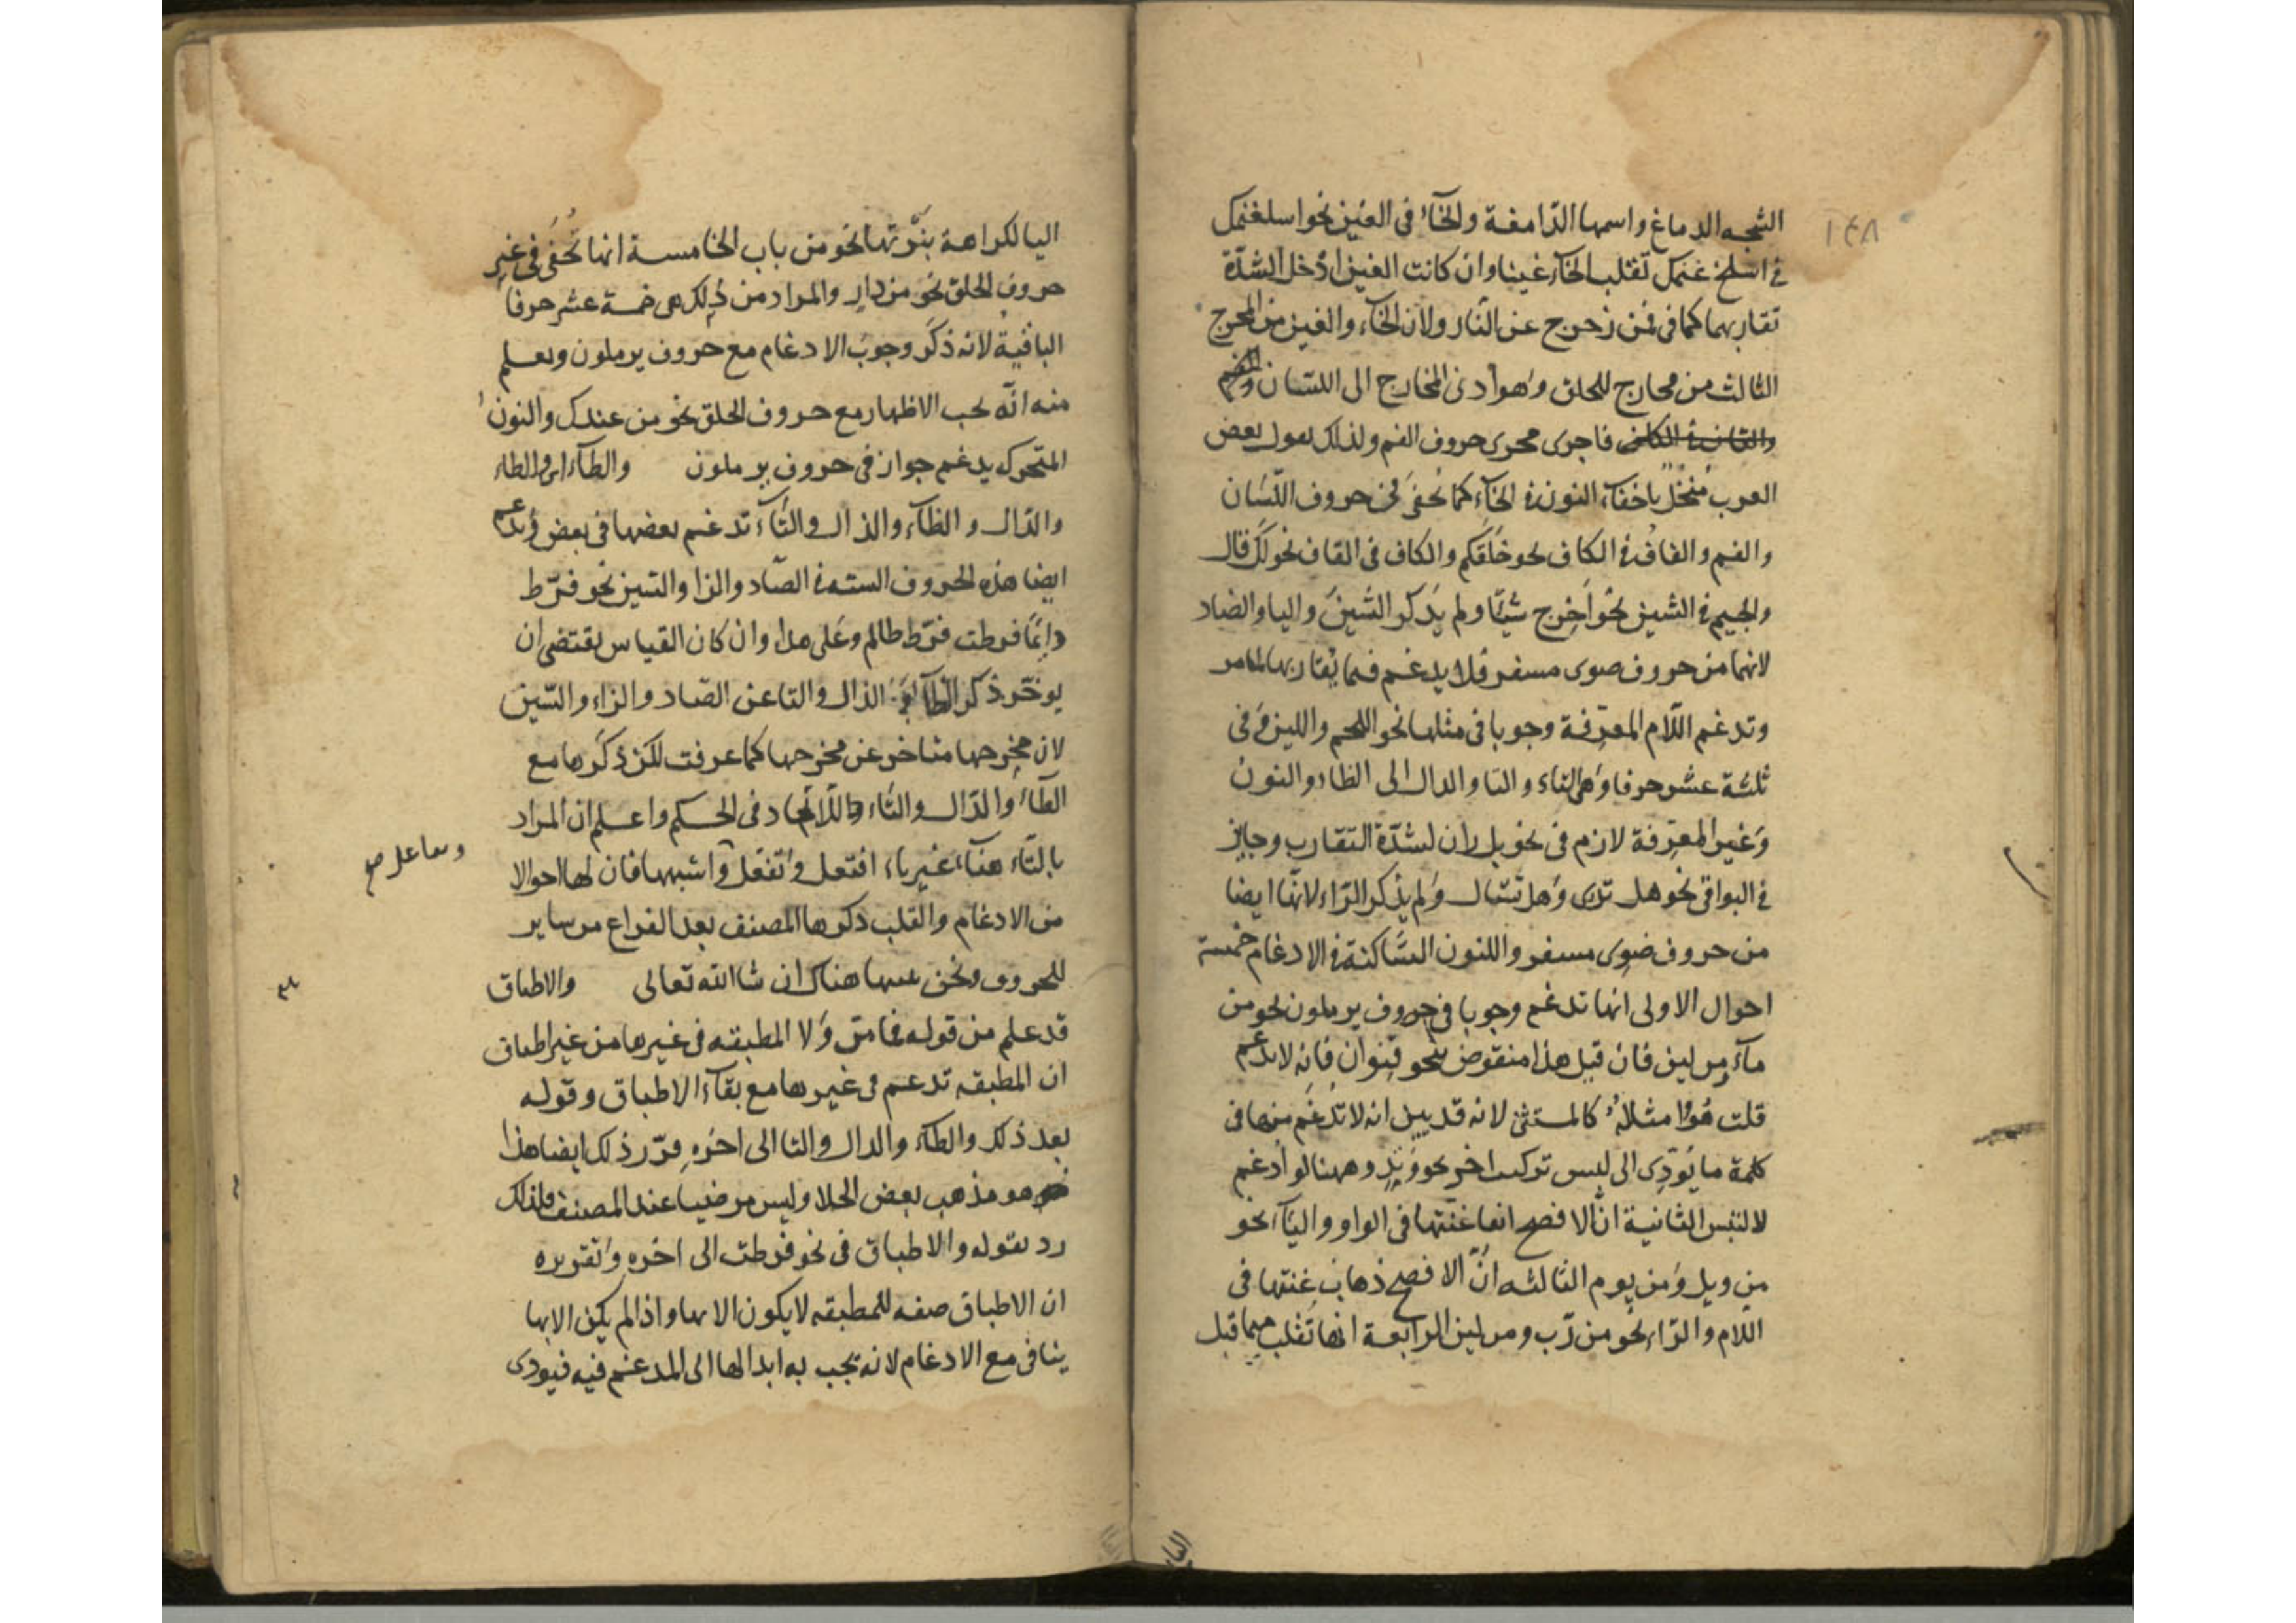 ١٤٨
الشجه الدماغ واسمها الدّامغة والخآء في الغين نحو اسلغنمك
في اسلخ غنمك تقلب الخآء غينا وان كانت الغين ادخل لشدّة
تقاربهما كما في فمن زحزح عن النّار ولان الخآء والغين من المخرج
الثالث من مخارج الحلق وهو أدنى المخارج الى اللسان والفم
فاجرى مجرى حروف الفم ولذلك يقول بعض
العرب مُنخُل باخفآء النون في الخآء كما تُخفى في حروف اللّسان
والفم والقاف في الكاف نحو خَلَقكم والكاف في القاف نحو لك قال
والجيم في الشين نحو أخرج شيًّا ولم يذكر الشّين واليا والضاد
لانهما من حروف ضوى مشفر فلا يدغم فيما يقاربها لما مر
وتدغم اللّام المعرّفة وجوبا في مثلها نحو اللحم واللين وفي
ثلثة عشر حرفا وهى التاء والثا والدال الى الظاء والنون
وغير المعرّفة لازم في نحو بل ران لشدّة التقارب وجايز
في البواقي نحو هل ترى وهل تسال ولم يذكر الرّاء لانّها ايضا
من حروف ضوى مشفر واللنون السّاكنة في الادغام خمسة
احوال الاولى انها تدغم وجوبا في حروف يرملون نحو من
مآء من لين فان قيل هذا منقوض بنحو قنوان فانه لا يدغم
قلت هوا مثلاً كالمستثنى لانه قد بين انه لا تدغم منها في
كلمة ما يؤدّى الى لبس تركيب اخر نحو وتد وههنا لو ادغم
لالتبس الثانية انّ الافصح ابقا غنتها في الواو واليآء نحو
من ويل ومن يوم الثالثه انّ الافصح ذهاب غنتها في
اللّام والرّاء نحو من رّب ومن لين الرابعة انها تقلب ميما قبل
اليا لكراهة نبرتها نحو من باب الخامسة انها تُخفى في غير
حروف الحلق نحو من دار والمراد من ذلك هي خمسة عشر حرفا
الباقية لانه ذكر وجوب الادغام مع حروف يرملون ويعلم
منه انّه يجب الاظهار مع حروف الحلق نحو من عندك والنون
المتحرك يدغم جواز في حروف يرملون والطآء والظاء
والدّال والظآء والذال والثآء تدغم بعضها في بعض وتدغم
ايضا هذه الحروف السته في الصّاد والزا والسين نحو فرّط
دائمًا فرطت فرّط ظالم وعلى هذا وان كان القياس يقتضى ان
يوخّر ذكر الظآء والذال والثا عن الصّاد والزاء والسّين
لان مخرجها متاخر عن مخرجها كما عرفت لكن ذكرها مع
الطاء والدّال والتاء للاتحاد في الحكم واعلم ان المراد
بالتاء هناء غير تاء افتعل وتفعل واشبهها فان لها احوالا
من الادغام والقلب ذكرها المصنف بعد الفراغ من ساير
الحروف ونحن هناك ان شا الله تعالى والاطباق
قد علم من قوله فيما مرّ ولا المطبقه في غيرها من غير اطباق
ان المطبقه تدغم في غيرها مع بقآء الاطباق وقوله
بعد ذلك والطآء والدال والتا الى اخره قرّر ذلك ايضا هذا
هو مذهب بعض وليس مرضيا عند المصنف فلذلك
رد بقوله والاطباق في نحو فرطت الى اخره وتقريره
ان الاطباق صفه للمطبقه لا يكون الا بها واذا لم يكن الا بها
ينافى مع الادغام لانه يجب به ابدالها الى المدغم فيه فيودى